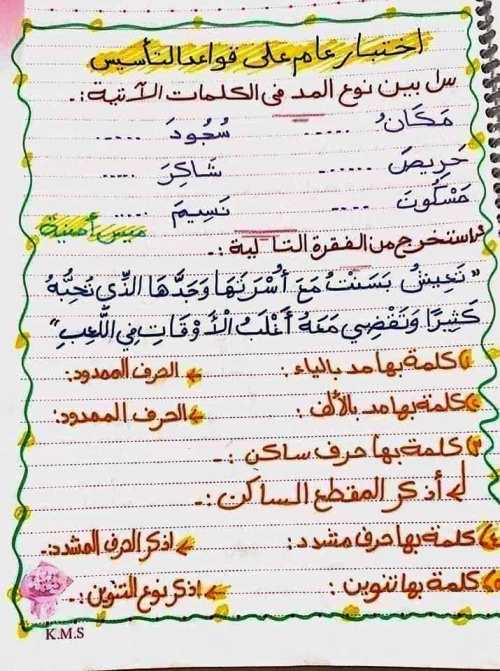 اختبار عام على قواعد التأسيس
س١ بين نوع المد في الكلمات الآتية :-
مَكَانُ ..... سُجُودَ .....
حَرِيصَ ...... شَاكِرَ .....
مَسْكُوتَ ..... نَسِيمَ .....
ميس أمنية
استخرج من الفقرة التالية :-
" تَعِيشُ بَسَنْتُ مَعَ أُسْرَتِهَا وَجَدَّهَا الَّذِي تُحِبُّهُ
كَثِيرًا وَتَقْضِي مَعَهُ أَغْلَبُ الْأَوْقَاتِ فِي اللَّعِبِ "
١) كلمة بها مد بالياء : الحرف الممدود:
٢) كلمة بها مد بالألف : الحرف الممدود:
٣) كلمة بها حرف ساكن :-
أذكر المقطع الساكن :-
٤) كلمة بها حرف مشدد : اذكر الحرف المشدد:-
كلمة بها تنوين : اذكر نوع التنوين :-
K.M.S